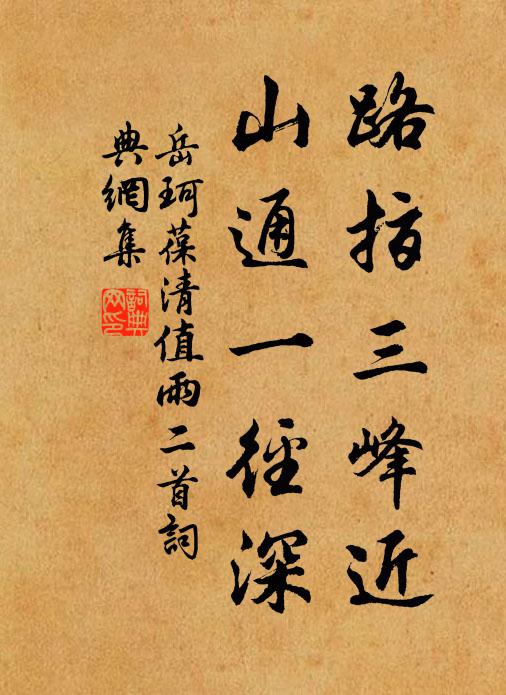 路指三峰近
山通一徑深
岳珂葆清值雨二首詞
典網集
詞典網印